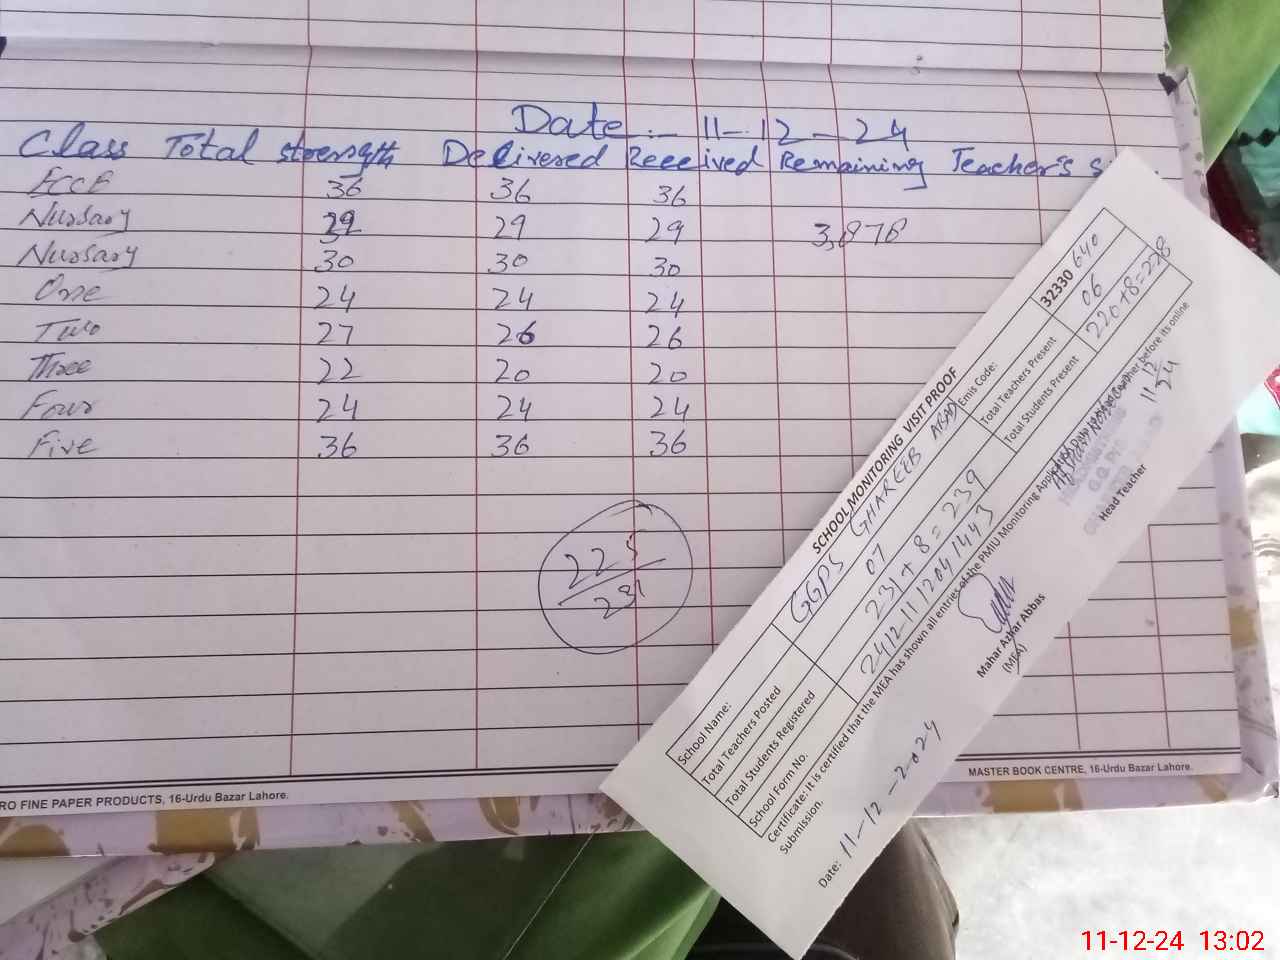 Date :- 11-12-24
Class Total strength Delivered Received Remaining Teacher's
ECCE 36 36 36
Nursary 29 29 29 3,878
Nursary 30 30 30
One 24 24 24
Two 27 26 26
Three 22 20 20
Four 24 24 24
Five 36 36 36
225
231
RO FINE PAPER PRODUCTS, 16-Urdu Bazar Lahore.
MASTER BOOK CENTRE, 16-Urdu Bazar Lahore.
SCHOOL MONITORING VISIT PROOF
School Name: GGPS GHAREEB ABAD Emis Code: 32330 640
Total Teachers Posted 07 Total Teachers Present 06
Total Students Registered 231+8=239 Total Students Present 220+8=228
School Form No. 2412-1112041443
Certificate: It is certified that the MEA has shown all entries of the PMIU Monitoring Application before its online
Submission.
11 12
24
Mahar Azhar Abbas
(MEA)
Head Teacher
Date: 11-12-2024
11-12-24 13:02